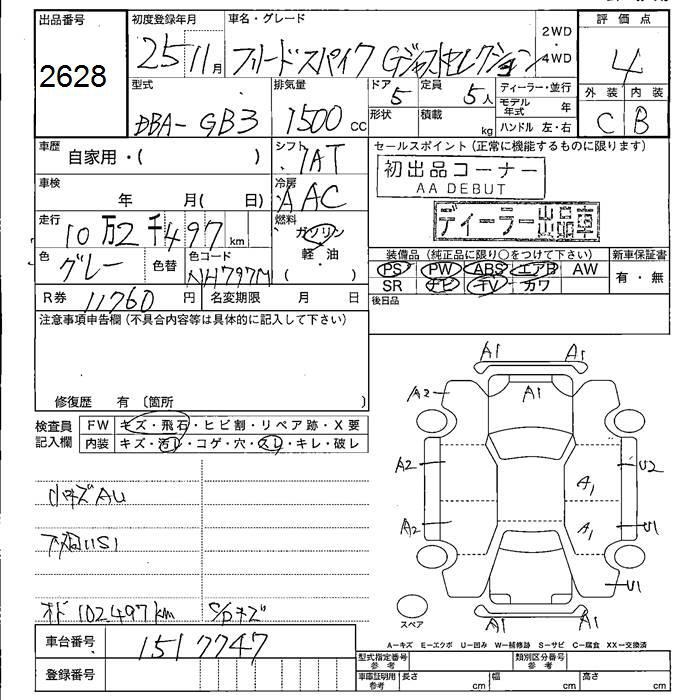 出品番号 初度登録年月 車名・グレード 2WD 4WD 評価点
2628 25 11月 フリードスパイク Gジャストセレクション 4
型式 排気量 ドア 定員 ディーラー・並行 外装 内装
DBA-GB3 1500cc 5 5人 モデル年式 年 C B
形状 積載 kg ハンドル 左・右
車歴 シフト セールスポイント(正常に機能するものに限ります)
自家用・( ) IAT 初出品コーナー
AA DEBUT
車検 冷房
年 月( 日) AAC ディーラー出品車
走行 燃料
10万2千497km ガソリン
色 色替 色コード 軽・油 装備品(純正品に限り○をつけて下さい) 新車保証書
グレー NH797M ( ) PS PW ABS エアB AW 有・無
SR ナビ TV カワ
R券 11760円 名変期限 月 日 後日品
注意事項申告欄(不具合内容等は具体的に記入して下さい)
修復歴 有〔箇所
検査員 FW キズ・飛石・ヒビ割・リペア跡・X要
記入欄 内装 キズ・汚レ・コゲ・穴・スレ・キレ・破レ
A1 A1
A2 A1
A2 U2
A1
A2 A1 U1
U1
A1 A1
小キズAU
下廻りS1
オド102497km S/Pキズ
スペア
A-キズ E-エクボ U-凹み W-補修跡 S-サビ C-腐食 XX-交換済
車台番号 1517747 型式指定番号 参考 類別区分番号 参考
登録番号 車庫証明用 参考 長さ cm 幅 cm 高さ cm